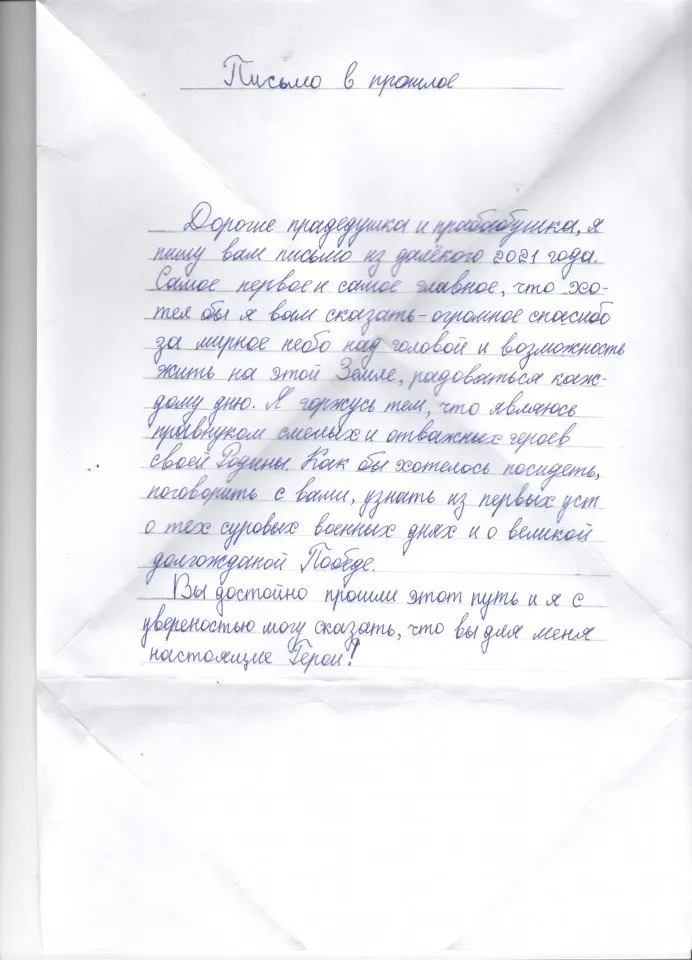 Письмо в прошлое
Дорогие прадедушка и прабабушка, я
пишу вам письмо из далёкого 2021 года.
Самое первое и самое главное, что хо-
тел бы я вам сказать - огромное спасибо
за мирное небо над головой и возможность
жить на этой Земле, радоваться каж-
дому дню. Я горжусь тем, что являюсь
правнуком смелых и отважных героев
своей Родины. Как бы хотелось посидеть,
поговорить с вами, узнать из первых уст
о тех суровых военных днях и о великой
долгожданой Победе.
Вы достойно прошли этот путь и я с
увереностью могу сказать, что вы для меня
настоящие Герои!